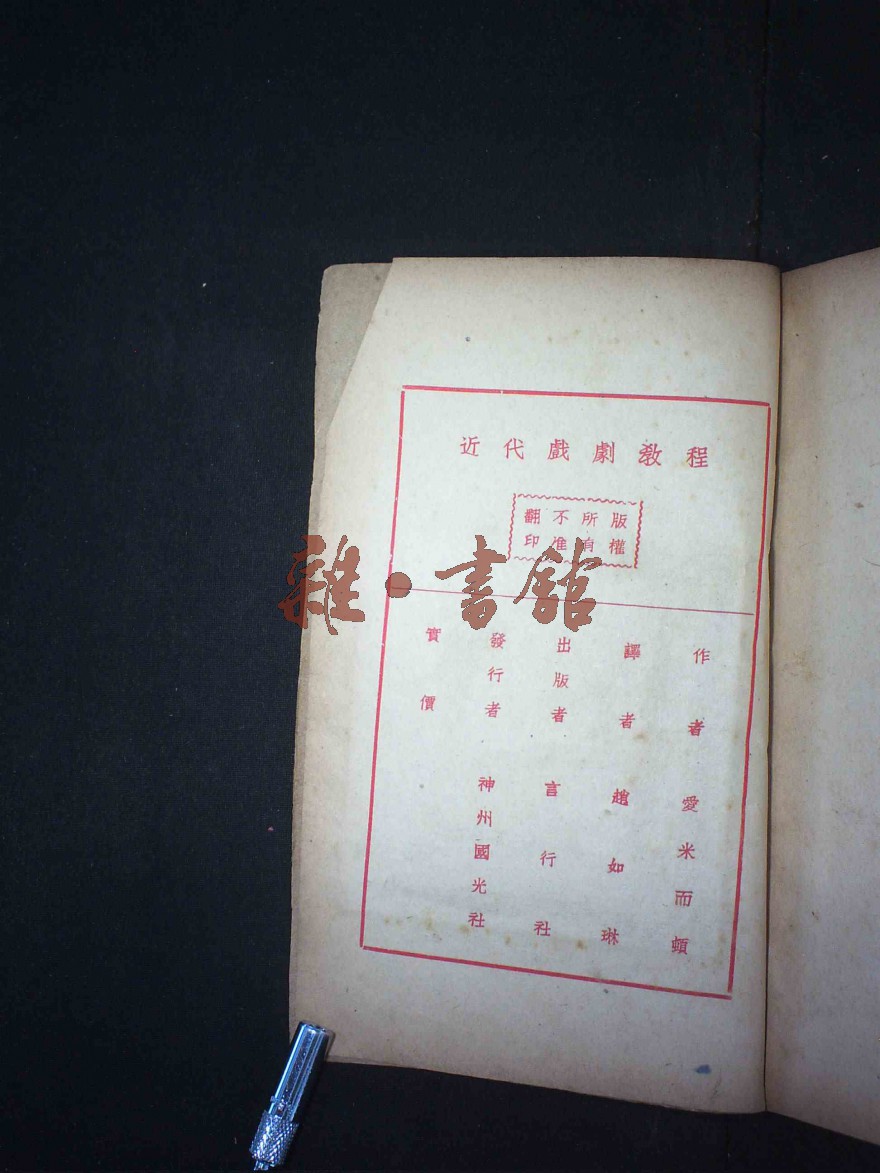 近代戲劇教程
版權
所有
不准
翻印
作者 愛米而頓
譯者 趙如琳
出版者 言行社
發行者 神州國光社
實價
雜·書館